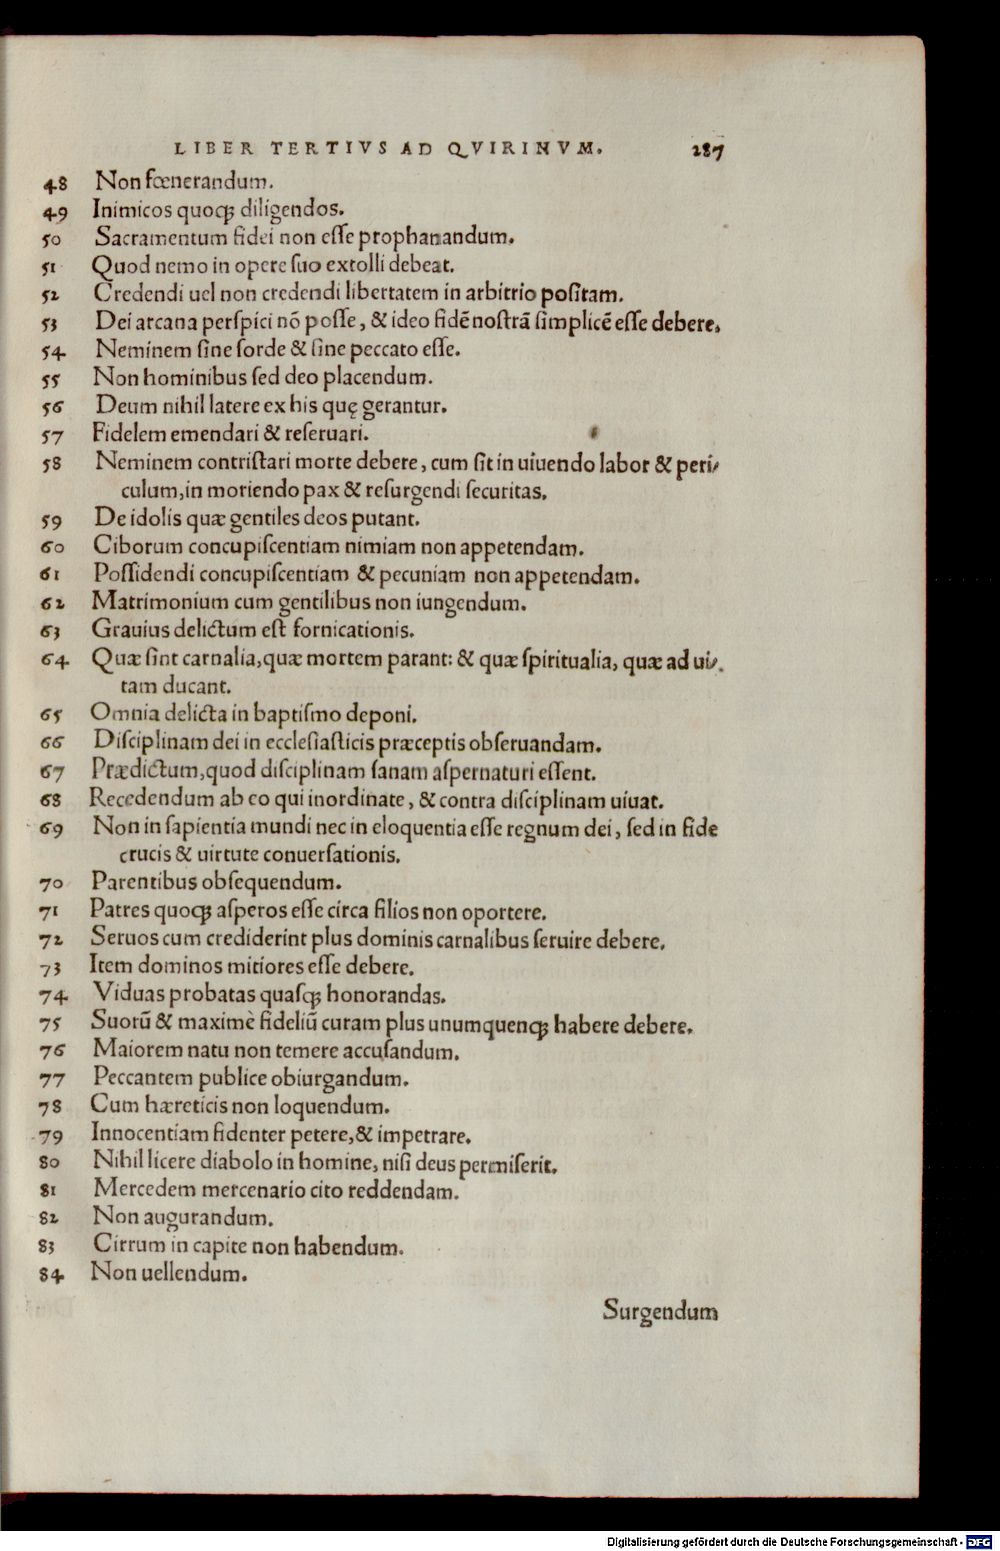 LIBER TERTIVS AD QVIRINVM. 287
48 Non fœnerandum.
49 Inimicos quoqꝫ diligendos.
50 Sacramentum fidei non eſſe prophanandum.
51 Quod nemo in opere ſuo extolli debeat.
52 Credendi uel non credendi libertatem in arbitrio poſitam.
53 Dei arcana perſpici nō poſſe, & ideo fidē noſtrā ſimplicē eſſe debere.
54 Neminem ſine ſorde & ſine peccato eſſe.
55 Non hominibus ſed deo placendum.
56 Deum nihil latere ex his quę gerantur.
57 Fidelem emendari & reſeruari.
58 Neminem contriſtari morte debere, cum ſit in uiuendo labor & peri⸗
culum, in moriendo pax & reſurgendi ſecuritas.
59 De idolis quæ gentiles deos putant.
60 Ciborum concupiſcentiam nimiam non appetendam.
61 Poſſidendi concupiſcentiam & pecuniam non appetendam.
62 Matrimonium cum gentilibus non iungendum.
63 Grauius delictum eſt fornicationis.
64 Quæ ſint carnalia, quæ mortem parant: & quæ ſpiritualia, quæ ad ui⸗
tam ducant.
65 Omnia delicta in baptiſmo deponi.
66 Diſciplinam dei in eccleſiaſticis præceptis obſeruandam.
67 Prædictum, quod diſciplinam ſanam aſpernaturi eſſent.
68 Recedendum ab eo qui inordinate, & contra diſciplinam uiuat.
69 Non in ſapientia mundi nec in eloquentia eſſe regnum dei, ſed in fide
crucis & uirtute conuerſationis.
70 Parentibus obſequendum.
71 Patres quoqꝫ aſperos eſſe circa filios non oportere.
72 Seruos cum crediderint plus dominis carnalibus ſeruire debere.
73 Item dominos mitiores eſſe debere.
74 Viduas probatas quaſqꝫ honorandas.
75 Suorū & maximè fideliū curam plus unumquenqꝫ habere debere.
76 Maiorem natu non temere accuſandum.
77 Peccantem publice obiurgandum.
78 Cum hæreticis non loquendum.
79 Innocentiam fidenter petere, & impetrare.
80 Nihil licere diabolo in homine, niſi deus permiſerit.
81 Mercedem mercenario cito reddendam.
82 Non augurandum.
83 Cirrum in capite non habendum.
84 Non uellendum.
Surgendum
Digitalisierung gefördert durch die Deutsche Forschungsgemeinschaft - DFG